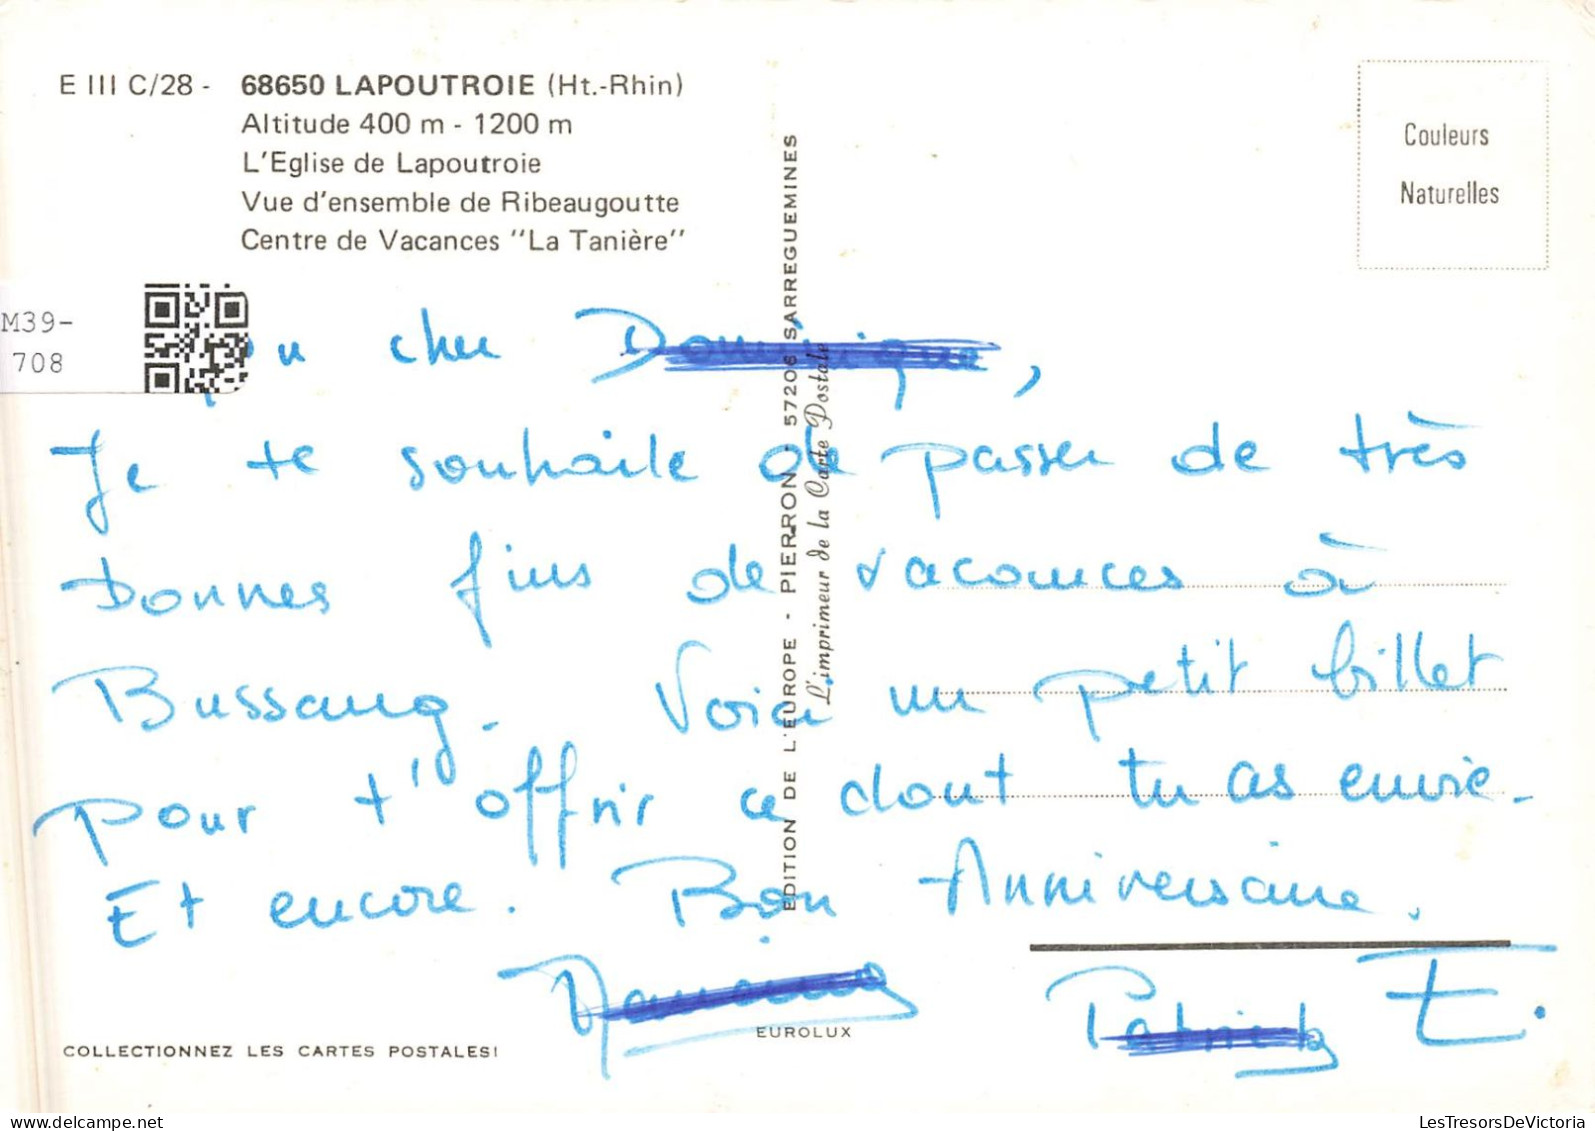 E III C/28 - 68650 LAPOUTROIE (Ht.-Rhin)
Altitude 400 m - 1200 m
L'Eglise de Lapoutroie
Vue d'ensemble de Ribeaugoutte
Centre de Vacances "La Tanière"
Couleurs
Naturelles
M39-
708
cher Dominique,
Je te souhaite de passer de très
bonnes fins de vacances à
Bussang. Voici un petit billet
pour t'offrir ce dont tu as envie.
Et encore. Bon Anniversaire.
Patrick E.
EDITION DE L'EUROPE - PIERRON - 57206 SARREGUEMINES
L'imprimeur de la Carte Postale
EUROLUX
COLLECTIONNEZ LES CARTES POSTALES!
LesTresorsDeVictoria